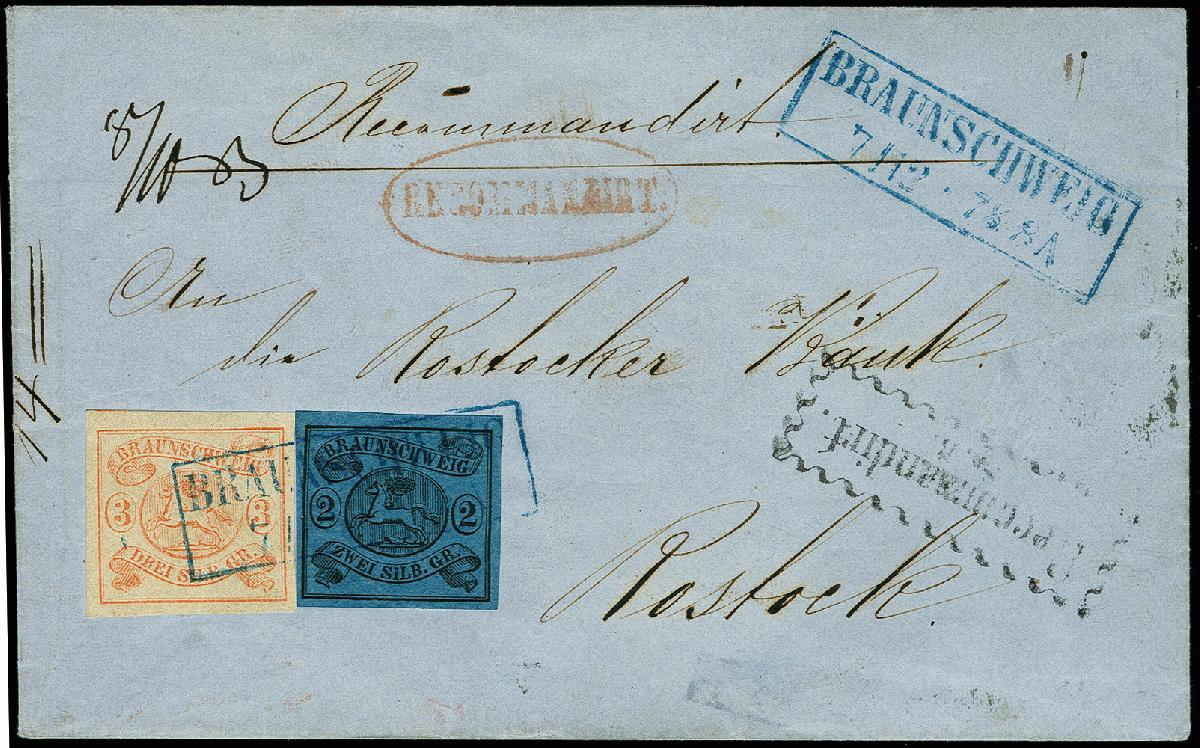 Recommandirt.
8/10 83
RECOMMANDIRT.
BRAUNSCHWEIG
7/12 · 7½ 8 A
An
die Rostocker Bank.
Recommandirt.
14
BRAUNSCHWEIG
3 3
DREI SILB. GR.
BRAUNSCHWEIG
2 2
ZWEI SILB. GR.
BRAU
Rostock.